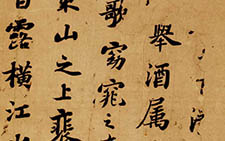 舉酒属
歌窈窕之
東山之上裵
白露橫江